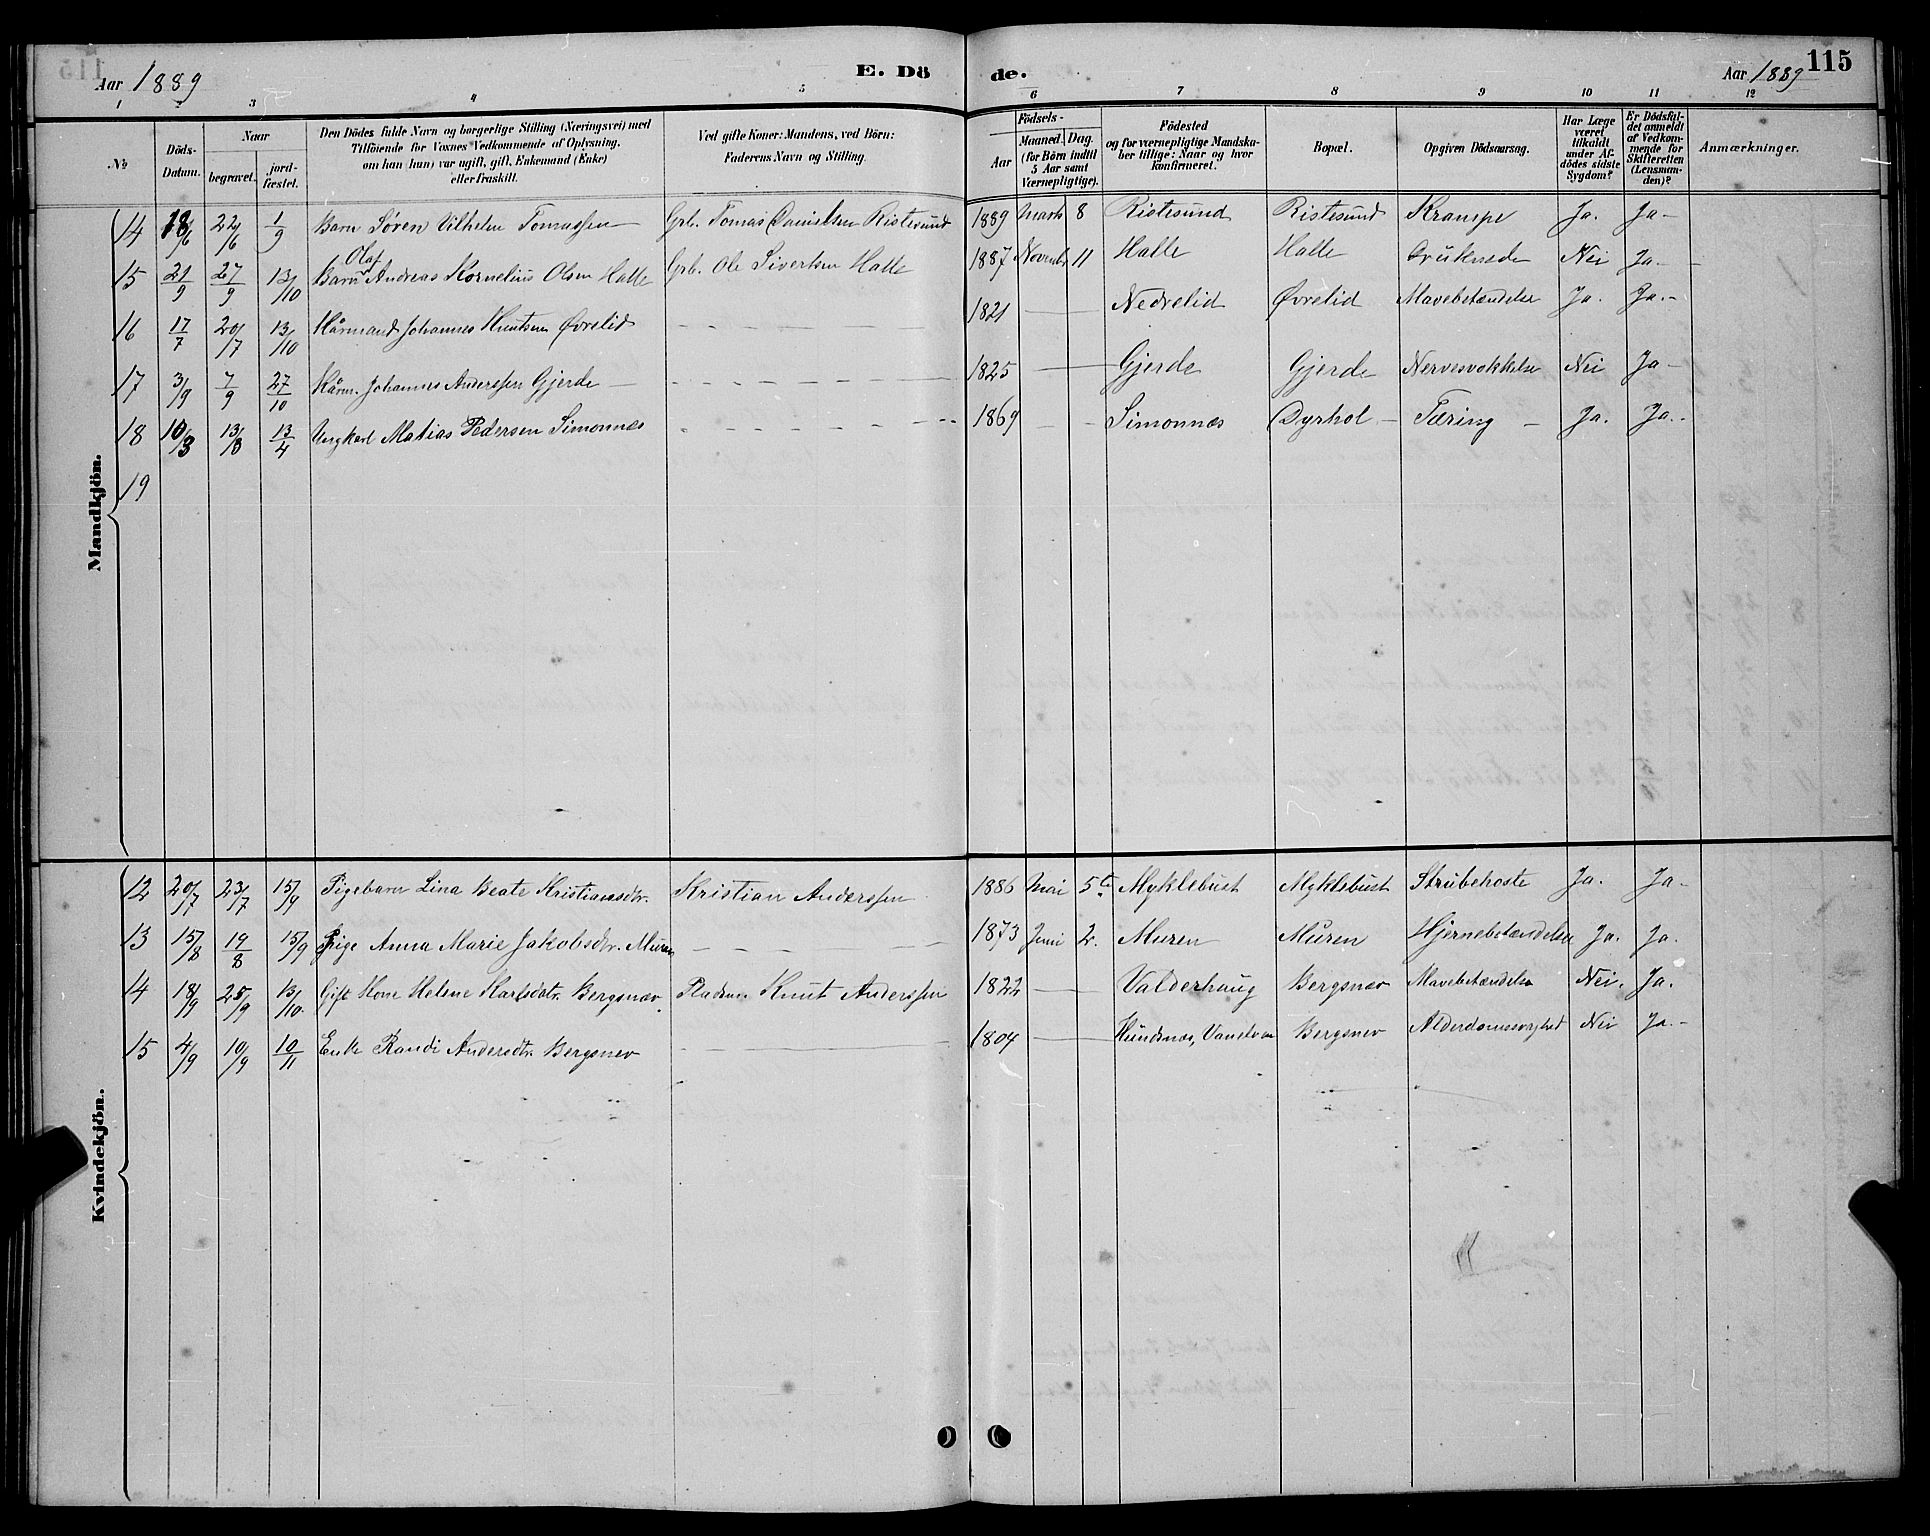 Aar 1889 E. Dö de. Aar 1889 115
1 2 3 4 5 6 7 8 9 10 11 12
№ Döds-Datum. Naar begravet. jordfæstet. Den Dödes fulde Navn og borgerlige Stilling (Næringsvei) med Tilföiende for Voxnes Vedkommende af Oplysning, om han (hun) var ugift, gift, Enkemand (Enke) eller fraskilt. Ved gifte Koner: Mandens, ved Börn: Faderens Navn og Stilling. Födsels- Aar Maaned. Dag. (for Börn indtil 5 Aar samt Værnepligtige). Födested og for værnepligtige Mandskaber tillige: Naar og hvor konfirmeret. Bopæl. Opgiven Dödsaarsag. Har Læge været tilkaldt under Afdödes sidste Sygdom? Er Dödsfaldet anmeldt af Vedkommende for Skifteretten (Lensmanden)? Anmærkninger.
Mandkjön.
14 18/6 22/6 1/9 Barn Søren Vilhelm Tomassen Grb. Tomas Danielsen Ristesund 1889 Marts 8 Ristesund Ristesund Krampe Ja. Ja
15 21/9 27/9 13/10 Barn Olaf Andreas Kornelius Olsen Halle Grb. Ole Sivertsen Halle 1887 November 11 Halle Halle Nei Ja
16 17/7 20/7 13/10 Kårmand Johannes Knutsen Øvrelid 1821 Nedrelid Øvrelid Mavebetændelse Ja. Ja.
17 3/9 7/9 27/10 Kårm. Johannes Anderssen Gjerde 1825 Gjerde Gjerde Nei Ja
18 10/3 13/3 13/4 Ungkarl Matias Pedersen Simonnes 1869 Simonnes Dyrhol Tæring Ja. Ja.
19
Kvindekjön.
12 20/7 23/7 15/9 Pigebarn Lina Beate Kristiansdtr. Kristian Anderssen 1886 Mai 5te Myklebust Myklebust Strubehoste Ja. Ja
13 15/8 19/8 15/9 Pige Anna Marie Jakobsdtr. Muren 1873 Juni 2. Muren Muren Hjernebetændelse Ja. Ja.
14 18/9 25/9 13/10. Gift Kone Helene Karlsdtr. Bergsnev. Pladsm. Knut Anderssen 1822 Valderhaug Bergsnev Mavebetændelse Nei. Ja.
15 4/9 10/9 10/11 Enke Randi Andersdtr. Bergsnev 1804 Hundsnes, Vanelven Bergsnev Alderdomssvaghed Nei Ja.